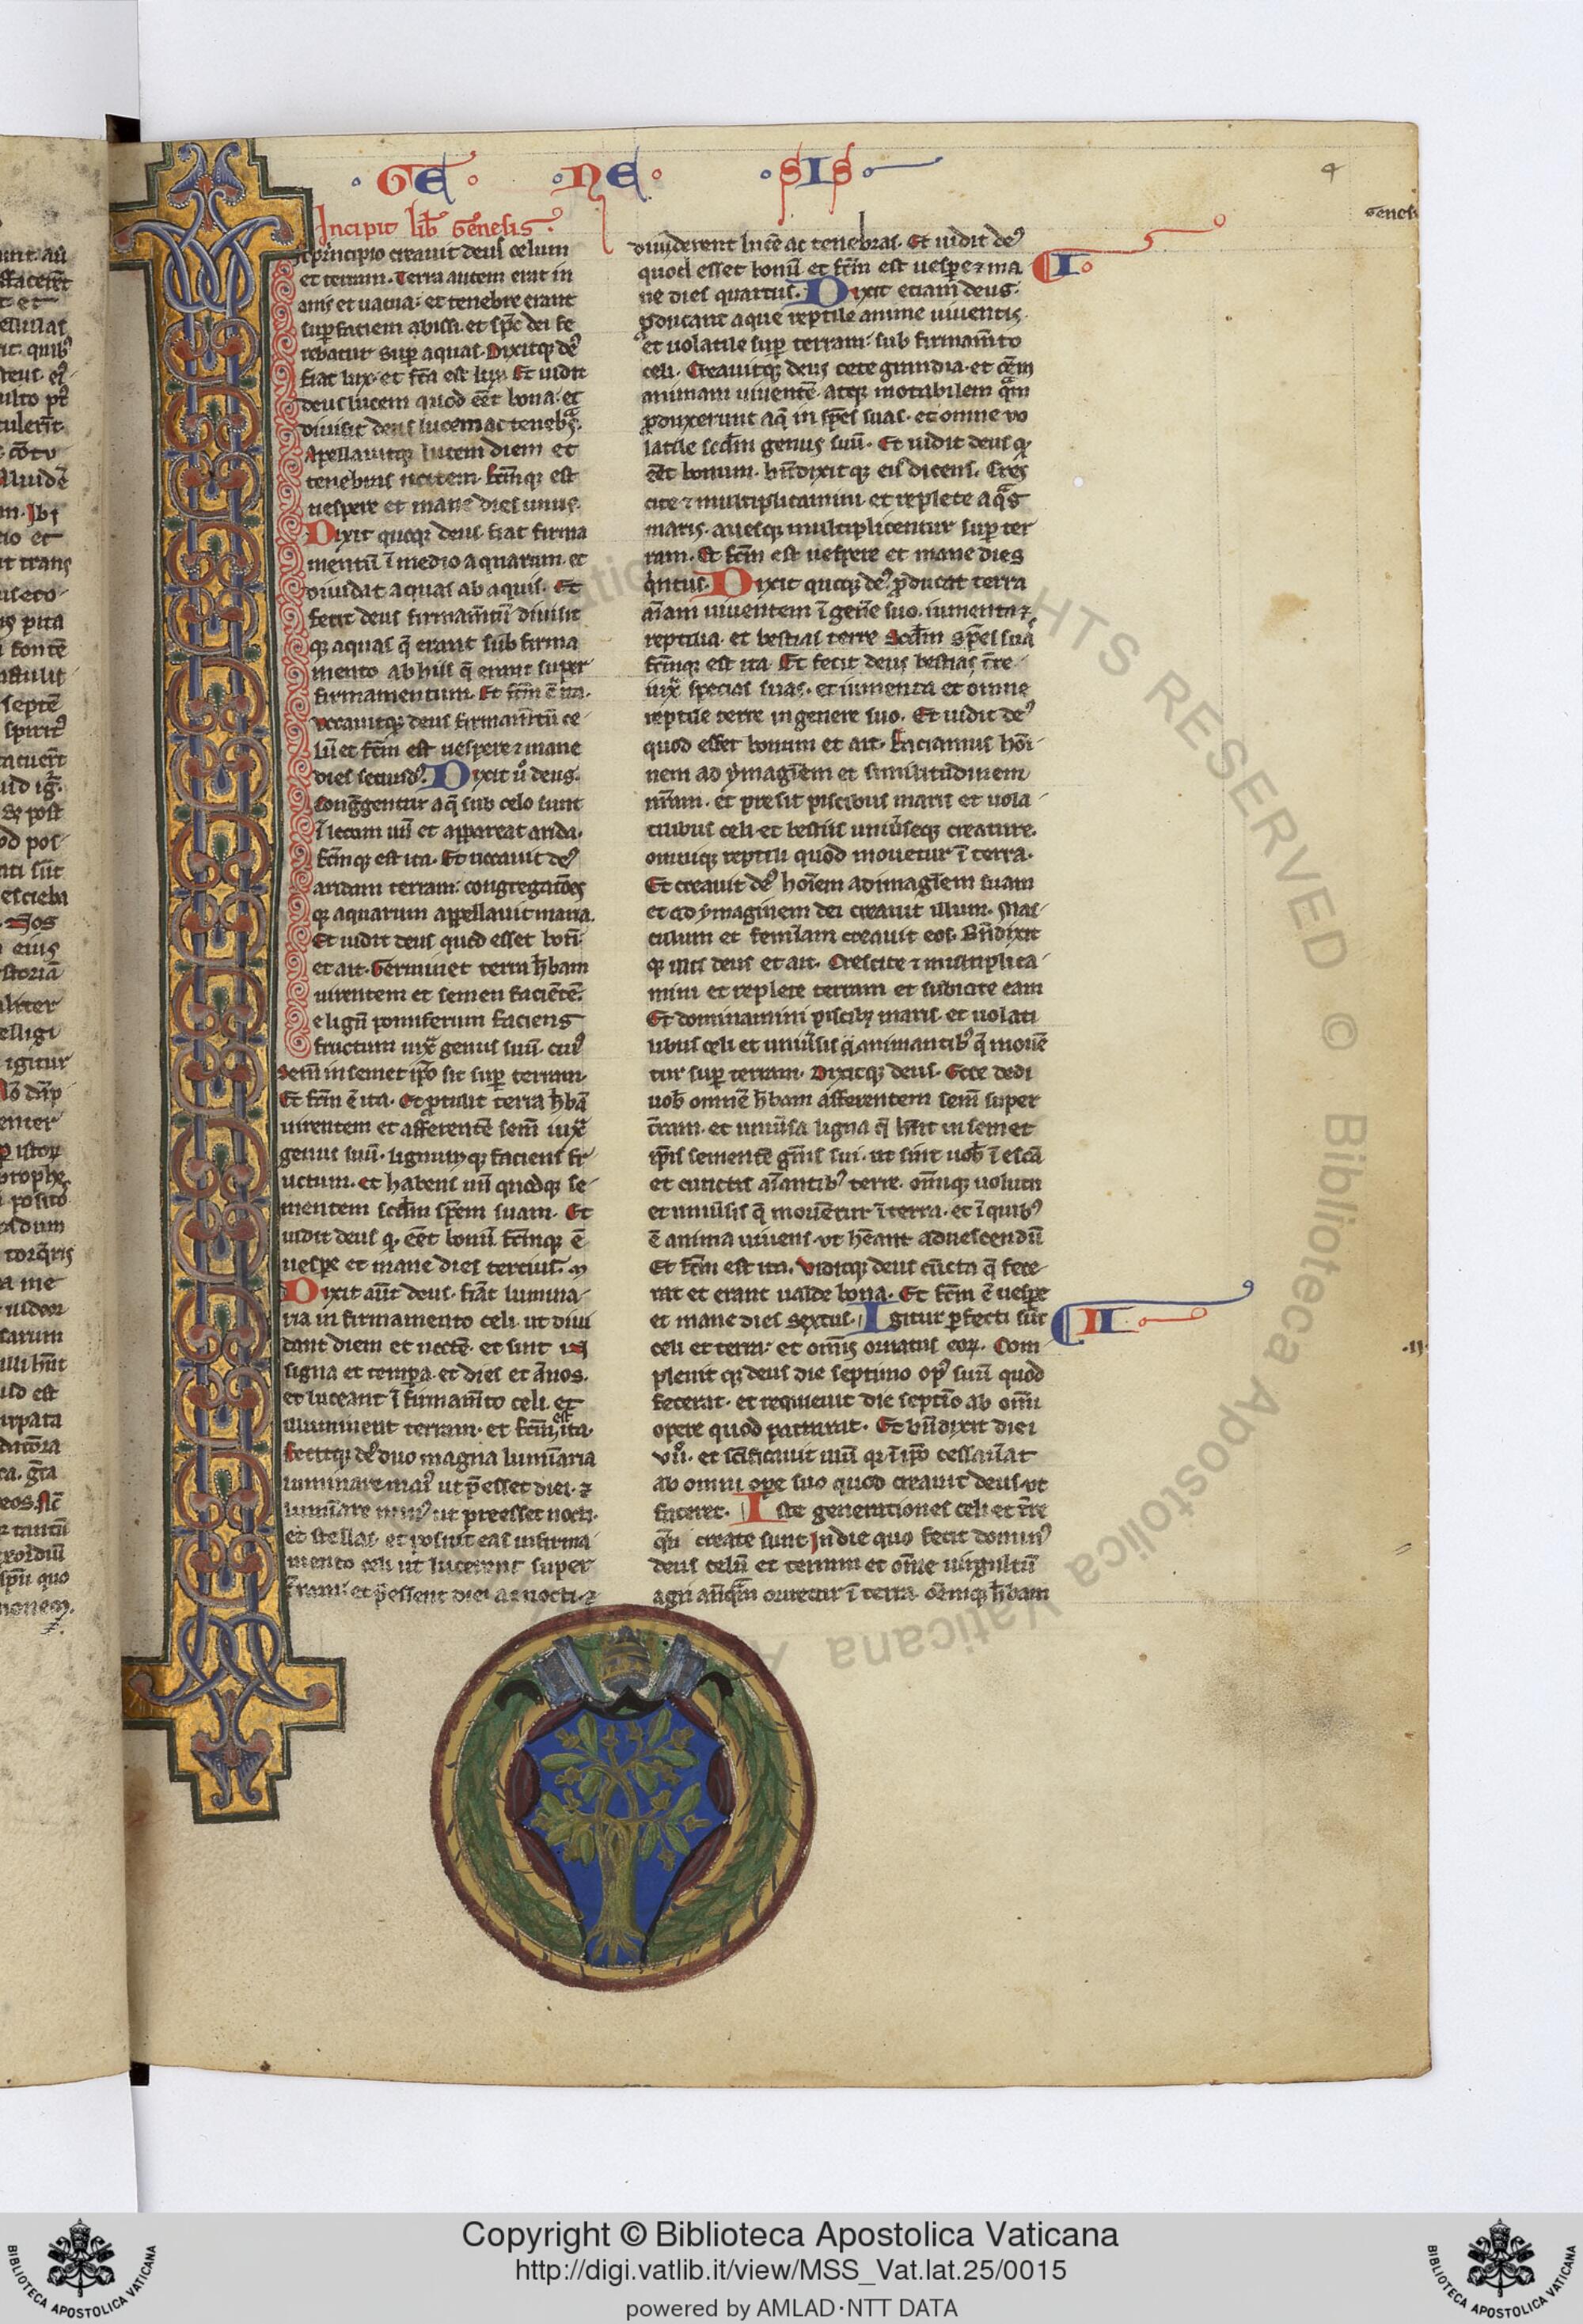 GE NE SIS
4
Genes
Incipit lib̄ Genesis.
principio creauit deus celum
et terram. Terra autem erat in
anis et uacua: et tenebre erant
sup faciem abissi. et sp̄c dei fe
rebatur sup aquas. Dixitqꝫ deꝰ
fiat lux. et fc̄a est lux. Et uidit
deus lucem quod eēt bona. et
diuisit deus lucem ac teneb̄s.
Apellauitqꝫ lucem diem et
tenebras noctem. fcm̄qꝫ est
uespere et mane dies unus.
Dixit quoqꝫ deus. fiat firma
mentū ī medio aquarum. et
diuidat aquas ab aquis. Et
fecit deus firmam̄tū diuisit
qꝫ aquas q̄ erant sub firma
mento ab hiis q̄ erant super
firmamentum. Et fcm̄ ē ita.
Vocauitqꝫ deus firmam̄tū ce
lū et fcm̄ est uespere ⁊ mane
dies secundꝰ. Dixit u̾o deus.
Congͣgentur aq̄ sub celo sunt
ī locum unū et appareat arida.
fcm̄qꝫ est ita. Et uocauit deꝰ
aridam terram: congregatōes
qꝫ aquarum appellauit maria.
Et uidit deus quod esset bonū.
et ait. Germinet terra h̄bam
uirentem et semen faciētē.
et lignū pomiferum faciens
fructum iuxͣ genus suū. cuiꝰ
sem̄ in semet ip̄o sit sup terram.
Et fcm̄ ē ita. Et ꝓtulit terra h̄bā
uirentem et afferentē sem̄ iuxͣ
genus suū. lignumqꝫ faciens fr
uctum. et habens unū quodqꝫ se
mentem scd̄m sp̄em suam. Et
uidit deus qꝫ eēt bonū fcm̄qꝫ ē
uespe et mane dies tercius.
Dixit aūt deus. fiāt lumina
ria in firmamento celi. ut diui
dant diem et noctē. et sint in
signa et tempa. et dies et ānos.
et luceant ī firmam̄to celi. et
illuminent terram. et fcm̄ est ita.
fecitqꝫ deꝰ duo magna lumīaria
luminare maiꝰ ut p̄esset diei. ⁊
lumīare minꝰ ut preesset nocti.
et stellas. et posuit eas in firma
mento celi ut lucerent super
t̄ram. et p̄essent diei ac nocti. ⁊
diuiderent lucē ac tenebras. Et uidit deꝰ
quod esset bonū et fcm̄ est uespe ⁊ ma
I
ne dies quartus. Dixit etiam deus.
ꝓducant aque reptile anime uiuentis.
et uolatile sup terram. sub firmam̄to
celi. Creauitqꝫ deus cete grandia. et oēm
animam uiuentē. atqꝫ motabilem qͣm
ꝓduxerunt aq̄ in sp̄es suas. et omne uo
latile scd̄m genus suū. Et uidit deus qꝫ
eēt bonum. bn̄dixitqꝫ eis dicens. Cres
cite ⁊ multiplicamini. et replete aqͣs
maris. auesqꝫ multiplicentur sup ter
ram. Et fcm̄ est uespere et mane dies
qͥntus. Dixit quoqꝫ deꝰ ꝓducat terra
aīam uiuentem ī gen̄e suo. iumenta ⁊
reptilia. et bestias terre scd̄m sp̄es suas
fcm̄qꝫ est ita. Et fecit deus bestias t̄re
iuxͣ species suas. et iumenta et omne
reptile terre in genere suo. Et uidit deꝰ
quod esset bonum et ait. Faciamus hoī
nem ad ymagīem et similitudinem
nr̄am. et presit piscibus maris et uola
tilibus celi. et bestiis uniūseqꝫ creature.
omniqꝫ reptili quod mouetur ī terra.
Et creauit deꝰ hoīem ad imagīem suam
et ad ymaginem dei creauit illum. Mas
culum et femīam creauit eos. Bn̄dixit
qꝫ illis deus et ait. Crescite ⁊ multiplica
mini et replete terram et subicite eam
Et dominamini piscibꝫ maris. et uolati
libus celi et uniūsis q̄ animantibꝰ q̄ mouē
tur sup terram. Dixitqꝫ deus. Ecce dedi
uob̄ omnē h̄bam afferentem sem̄ super
t̄ram. et uniūsa ligna q̄ hn̄t in semet
ip̄is sementē gn̄is sui. ut sint uob̄ ī escā
et cunctis aīantibꝰ terre. om̄iqꝫ uolucri
et uniūsis q̄ mouētur ī terra. et ī quibꝰ
ē anima uiuens. ut hēant ad uescendū
Et fcm̄ est ita. Viditqꝫ deus cūcta q̄ fece
rat et erant ualde bona. Et fcm̄ ē uespe
et mane dies sextus. Igitur ꝑfecti sūt
II
celi et terra: et om̄is ornatus eoꝝ. Com
pleuit qꝫ deus die septimo opꝰ suū quod
fecerat. et requieuit die septīo ab om̄i
opere quod patrarat. Et bn̄dixit diei
VIIͦ. et scīficauit illū qꝫ ī ip̄o cessau̾at
ab omni ope suo quod creauit deus. ut
faceret. Iste generationes celi et t̄re
qn̄ create sunt In die quo fecit dominꝰ
deus celū et terram et om̄e uirgultū
agri an̄qͣm oriretur ī terra. oēmqꝫ h̄bam
.ij.
RIGHTS RESERVED © Biblioteca Apostolica Vaticana
Copyright © Biblioteca Apostolica Vaticana
http://digi.vatlib.it/view/MSS_Vat.lat.25/0015
powered by AMLAD·NTT DATA
BIBLIOTECA APOSTOLICA VATICANA
BIBLIOTECA APOSTOLICA VATICANA